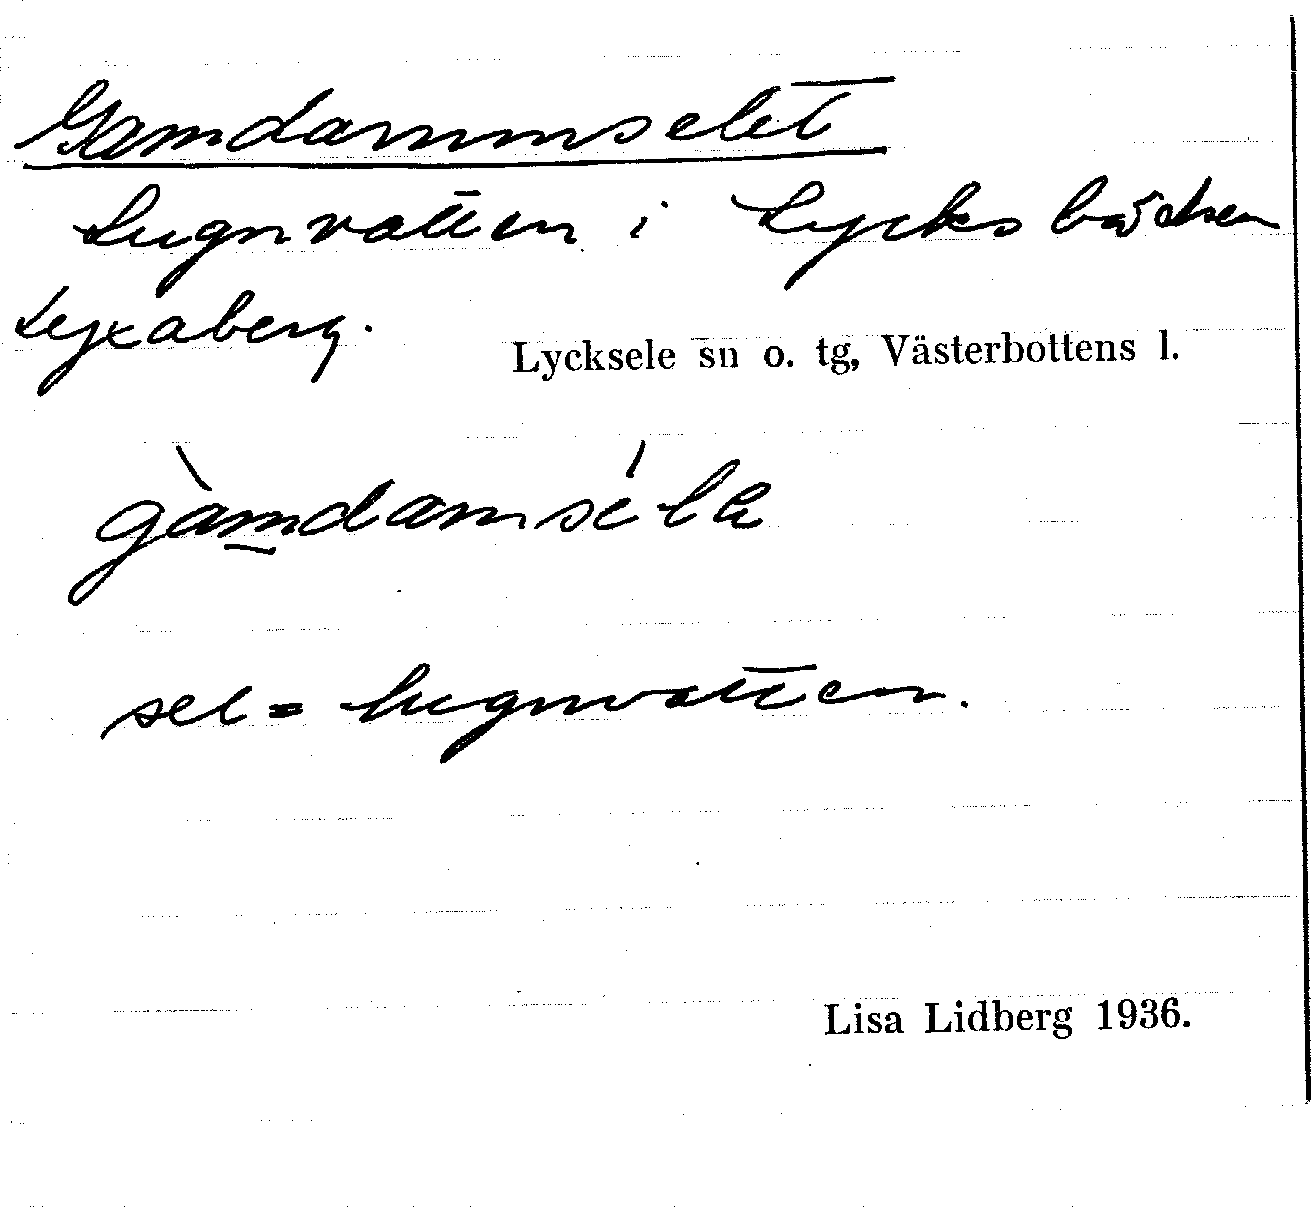 Gamdammselet
Lugnvatten i Lycksbäcken
Lyxaberg.
Lycksele sn o. tg, Västerbottens l.
gàmdamséla
sel = lugnvatten.
Lisa Lidberg 1936.